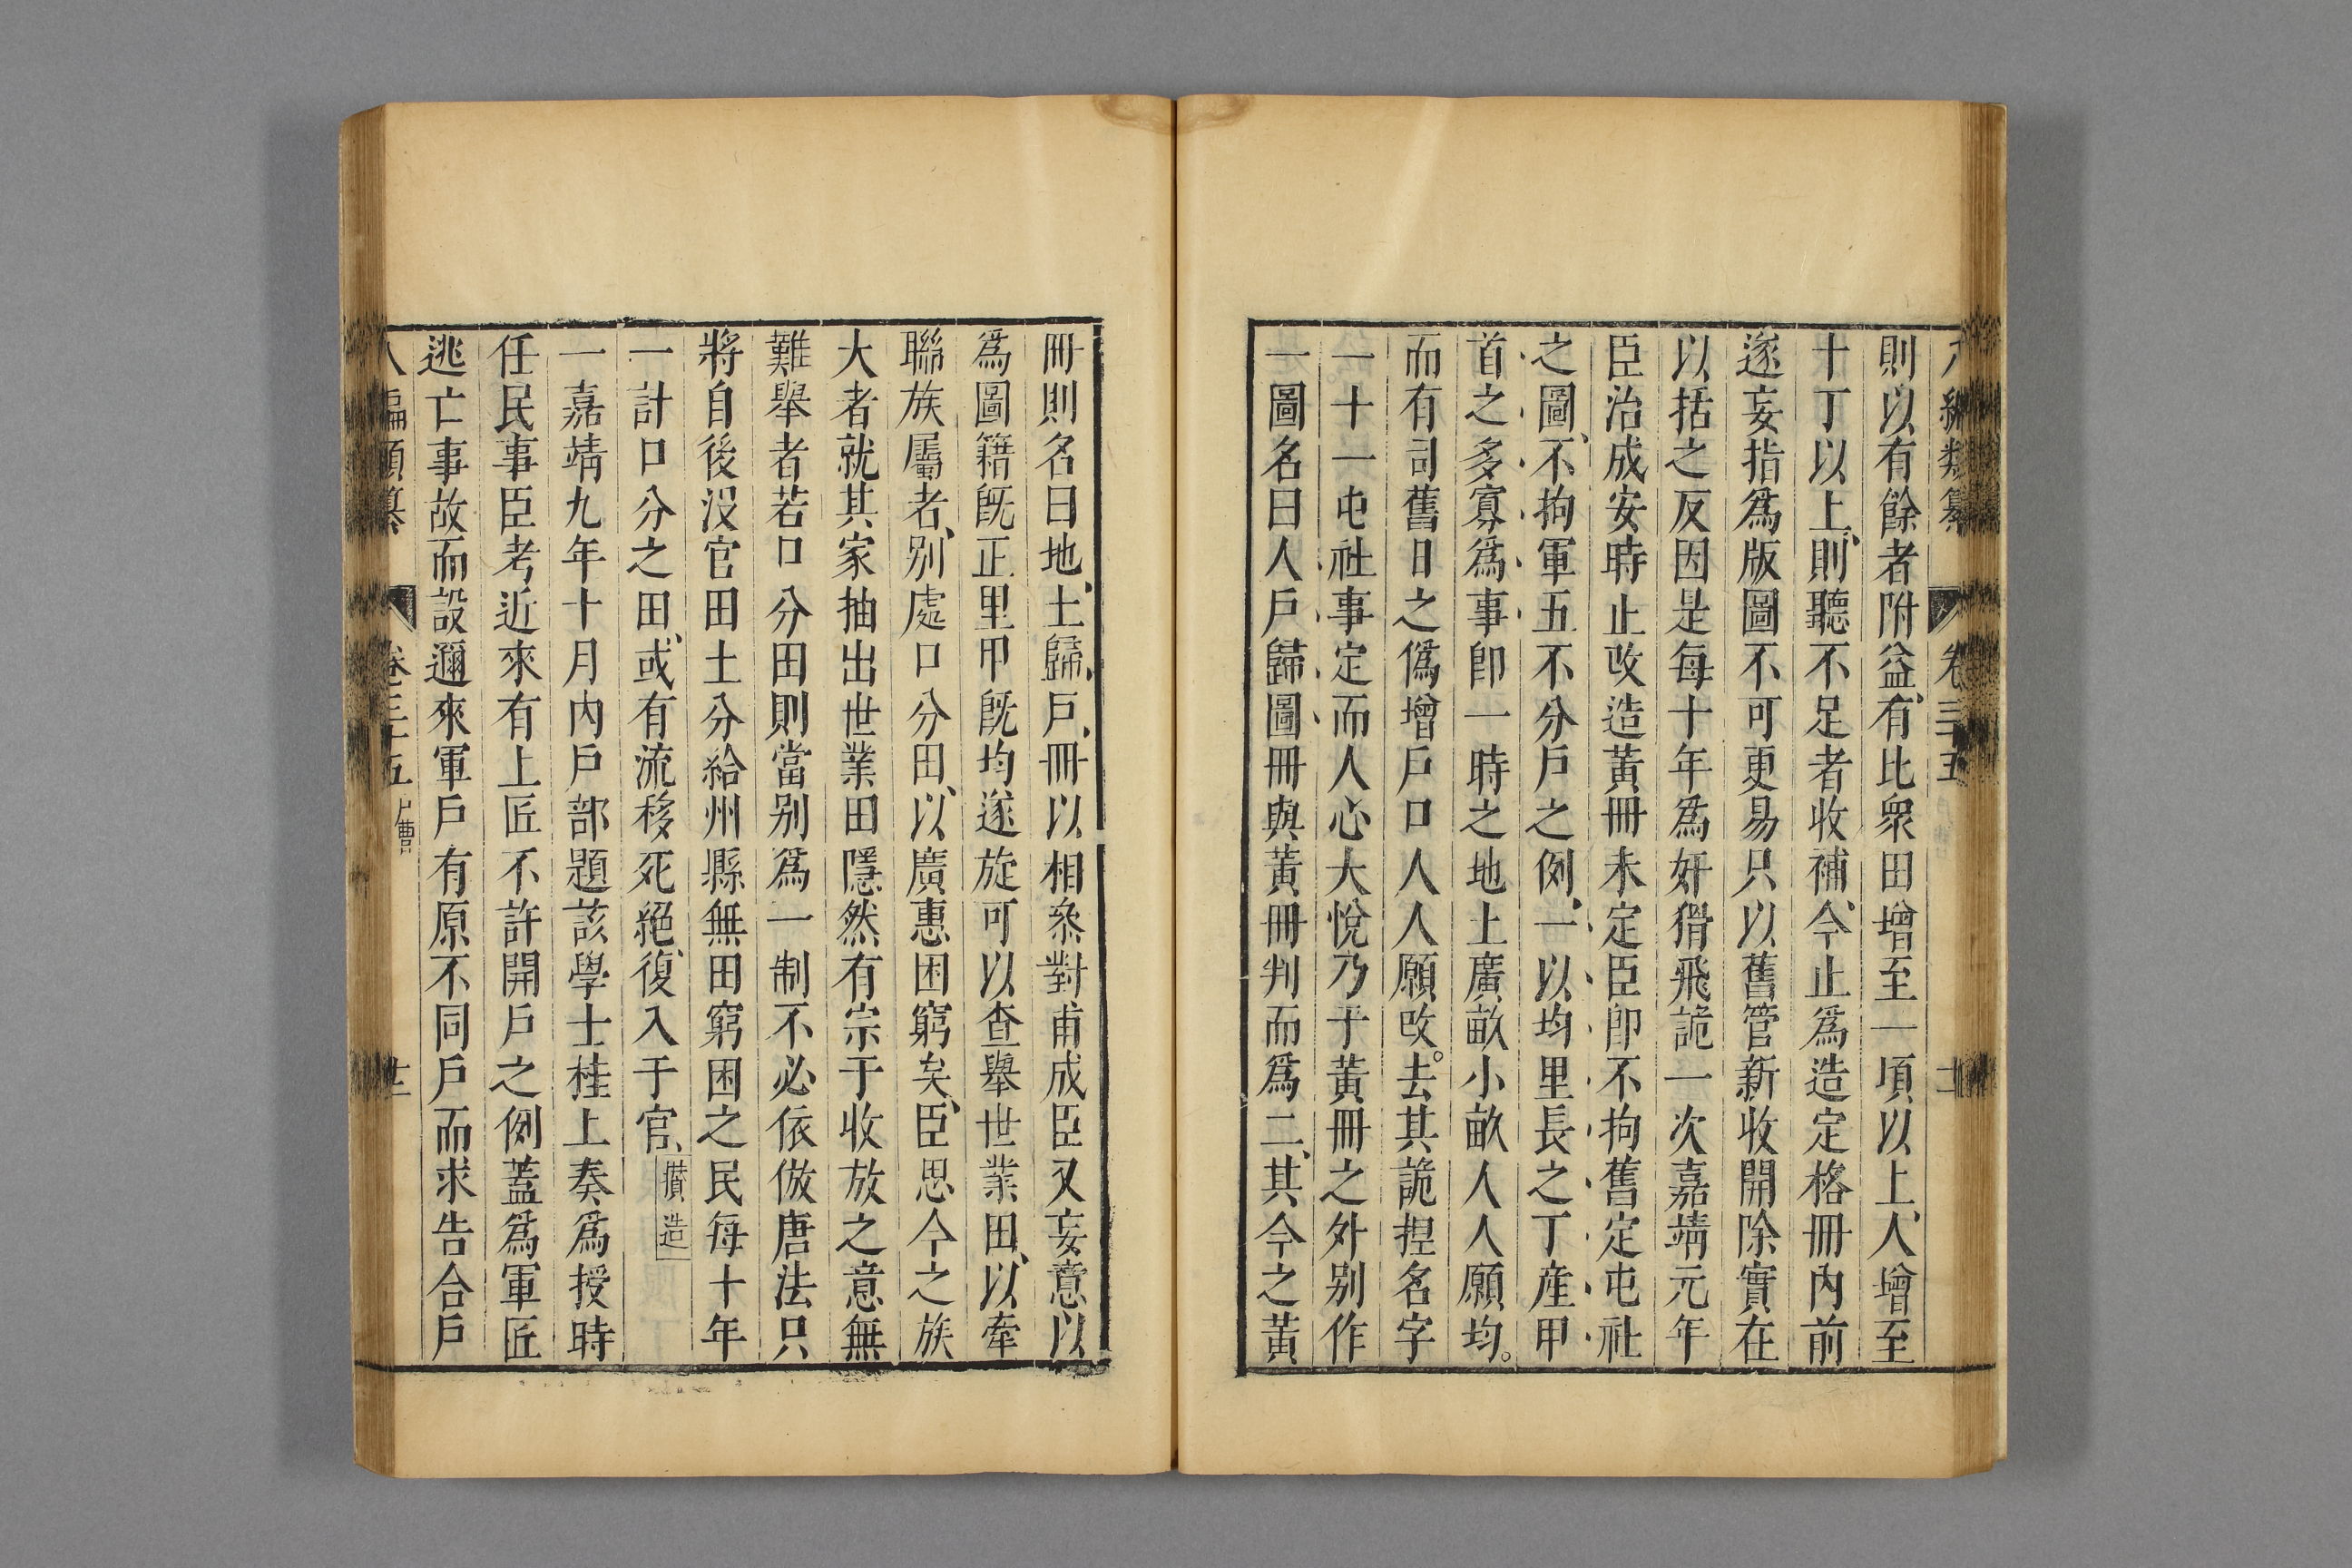 則以有餘者附益有比衆田增至一頃以上人增至
十丁以上則聽不足者收補今止爲造定格冊內前
遂妄指爲版圖不可更易只以舊管新收開除實在
以括之反因是每十年爲奸猾飛詭一次嘉靖元年
臣治成安時止改造黃冊未定臣卽不拘舊定屯社
之圖不拘軍五不分戶之例一以均里長之丁產甲
首之多寡爲事卽一時之地土廣畝小畝人人願均
而有司舊日之僞增戶口人人願改去其詭捏名字
一十一屯社事定而人心大悅乃于黃冊之外別作
一圖名曰人戶歸圖冊與黃冊判而爲二其今之黃
冊則名曰地土歸戶冊以相叅對甫成臣又妄意以
爲圖籍旣正里甲旣均遂旋可以查舉世業田以牽
聯族屬者別處口分田以廣惠困窮矣臣思今之族
大者就其家抽出世業田隱然有宗于收放之意無
難舉者若口分田則當別爲一制不必依倣唐法只
將自後沒官田土分給州縣無田窮困之民每十年
一計口分之田或有流移死絕復入于官攢造
一嘉靖九年十月內戶部題該學士桂上奏爲授時
任民事臣考近來有上匠不許開戶之例蓋爲軍匠
逃亡事故而設邇來軍戶有原不同戶而求告合戶
八編類纂 卷三十五 戶曹 十二